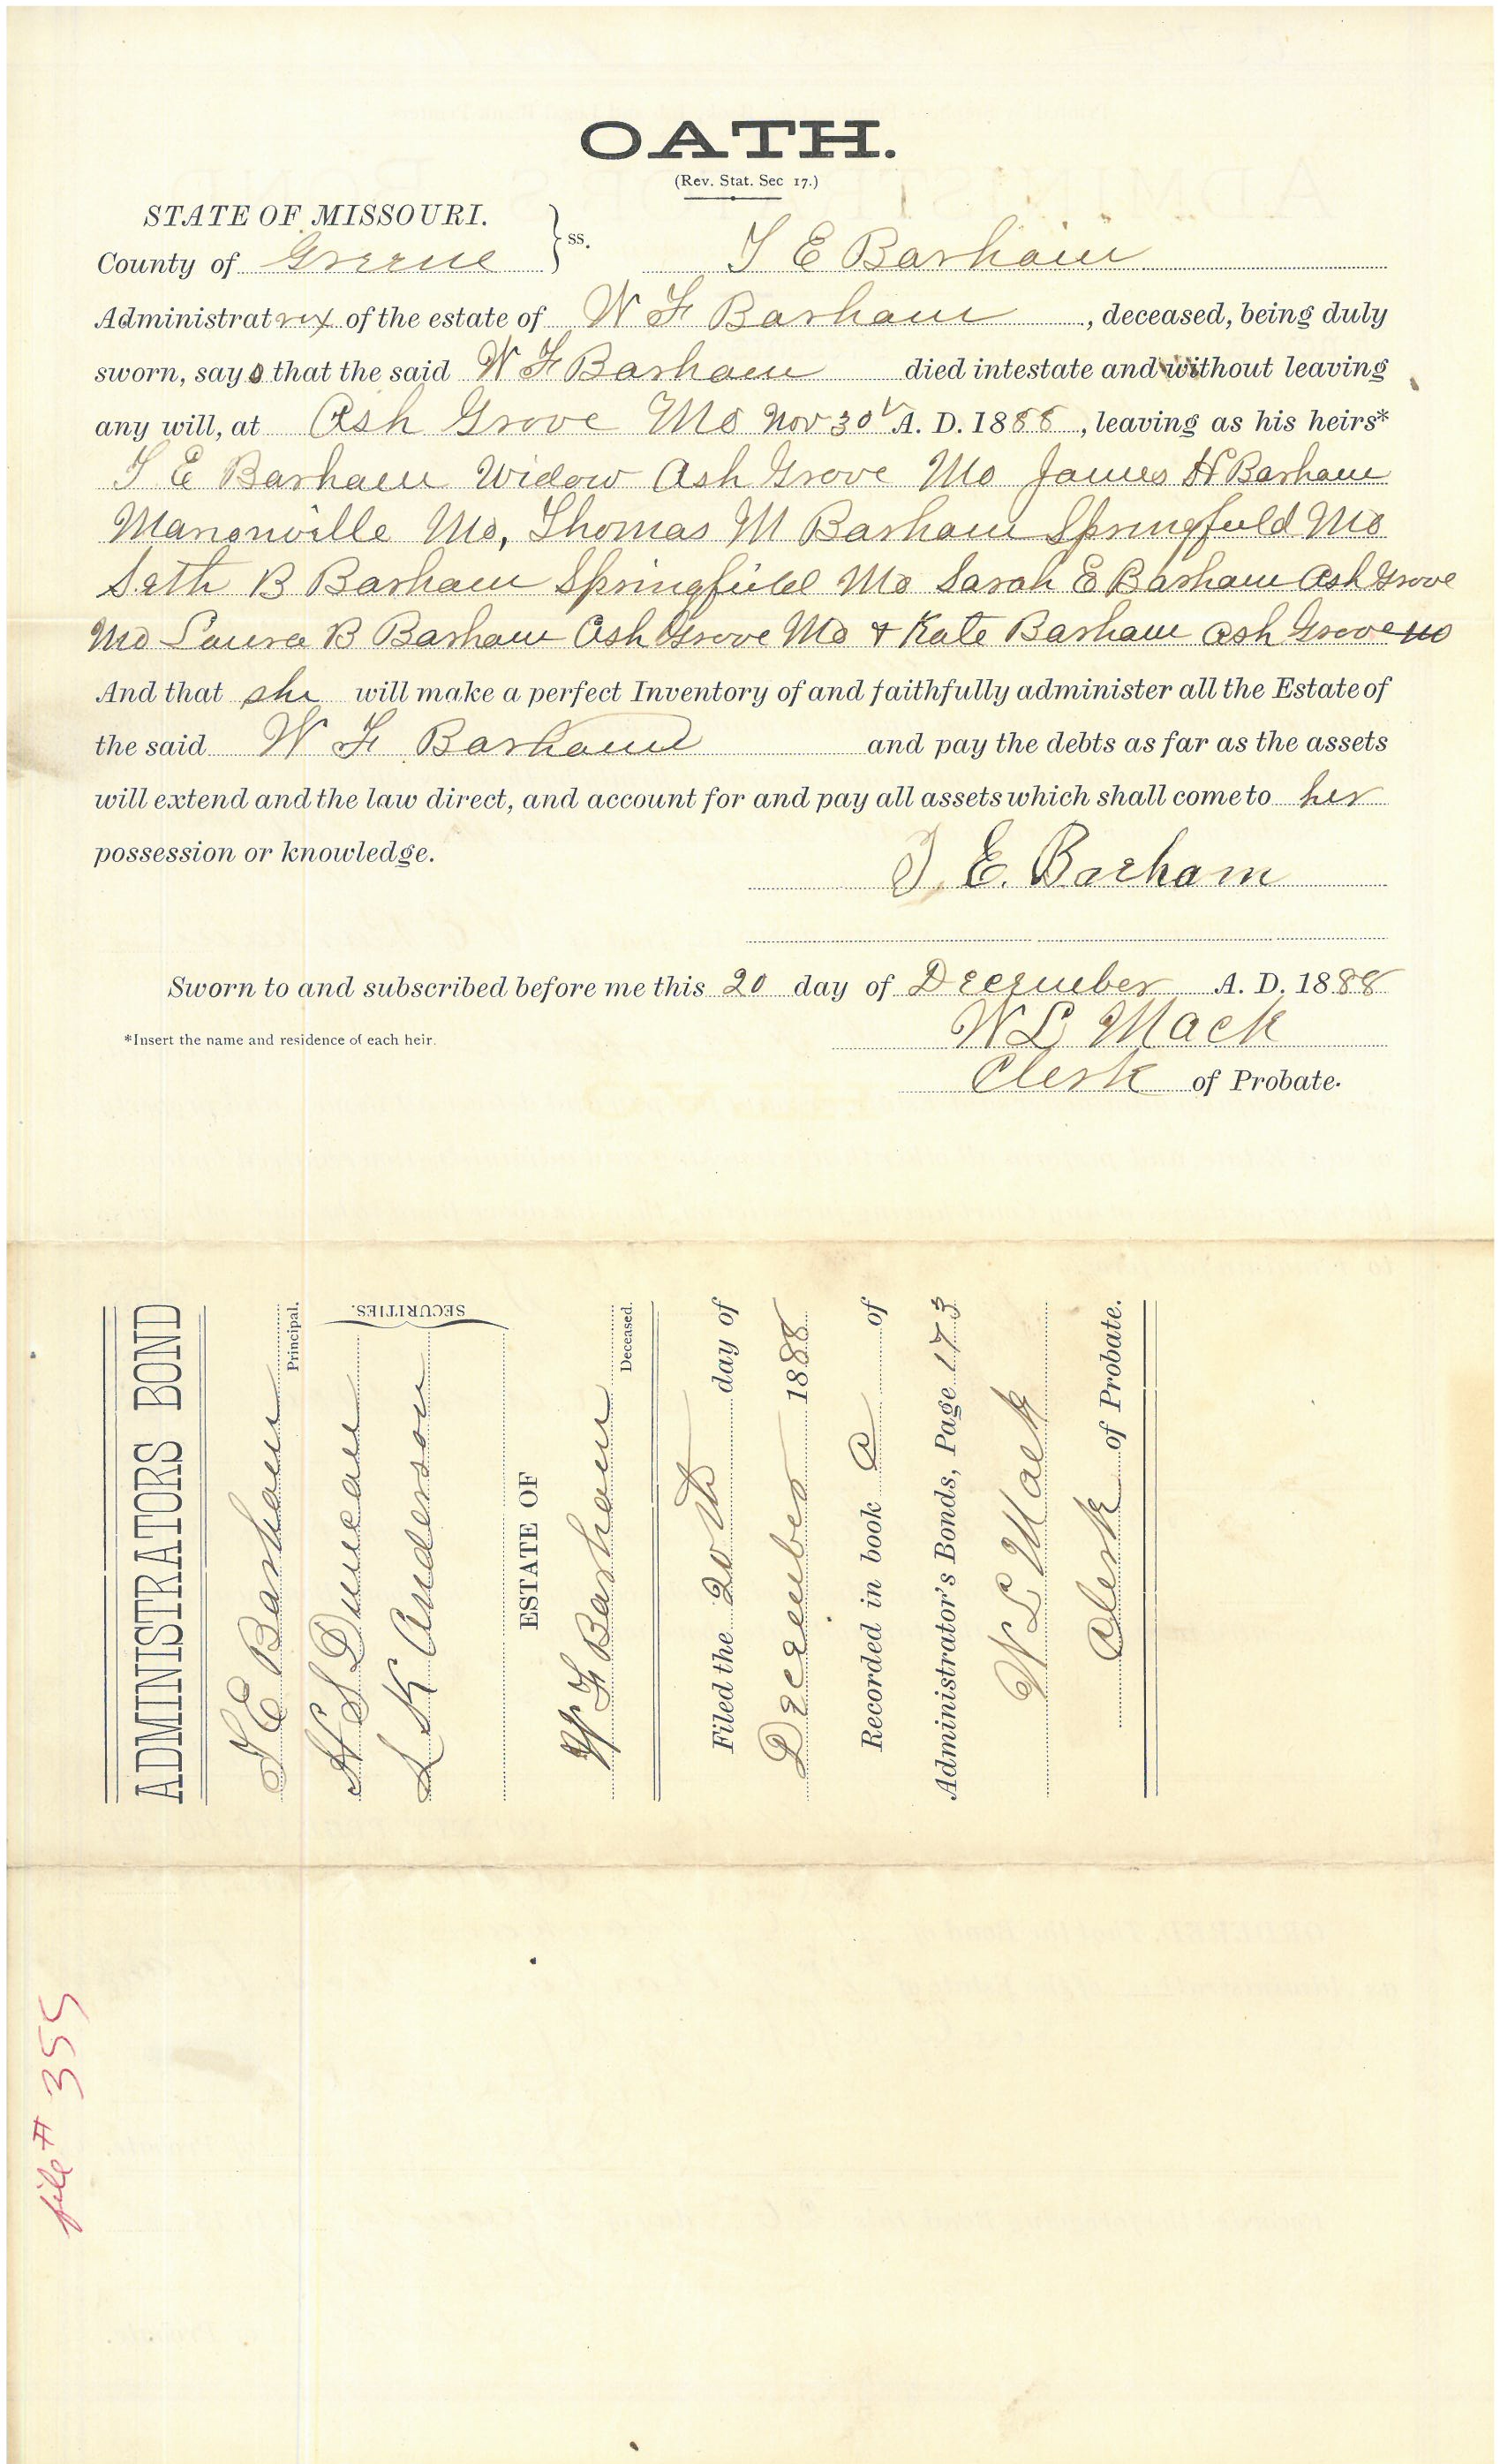 OATH.
(Rev. Stat. Sec 17.)
STATE OF MISSOURI.
County of Greene } ss. T E Barham
Administratrix of the estate of W F Barham, deceased, being duly
sworn, says that the said W F Barham died intestate and without leaving
any will, at Ash Grove Mo Nov 30 A. D. 1888, leaving as his heirs*
T E Barham Widow Ash Grove Mo James H Barham
Mo, Thomas M Barham Springfield Mo
Seth B Barham Springfield Mo Sarah E Barham Ash Grove
Mo Laura B Barham Ash Grove Mo & Kate Barham Ash Grove Mo
And that she will make a perfect Inventory of and faithfully administer all the Estate of
the said W F Barham and pay the debts as far as the assets
will extend and the law direct, and account for and pay all assets which shall come to her
possession or knowledge.
T. E. Barham
Sworn to and subscribed before me this 20 day of December A. D. 1888
*Insert the name and residence of each heir.
W L Mack
Clerk of Probate.
ADMINISTRATORS BOND
T E Barham
Principal.
H S Duncan
L K Anderson
SECURITIES.
ESTATE OF
W F Barham
Deceased.
Filed the 20th day of
December 1888
Recorded in book A of
Administrator's Bonds, Page 173
W L Mack
Clerk of Probate.
file # 355